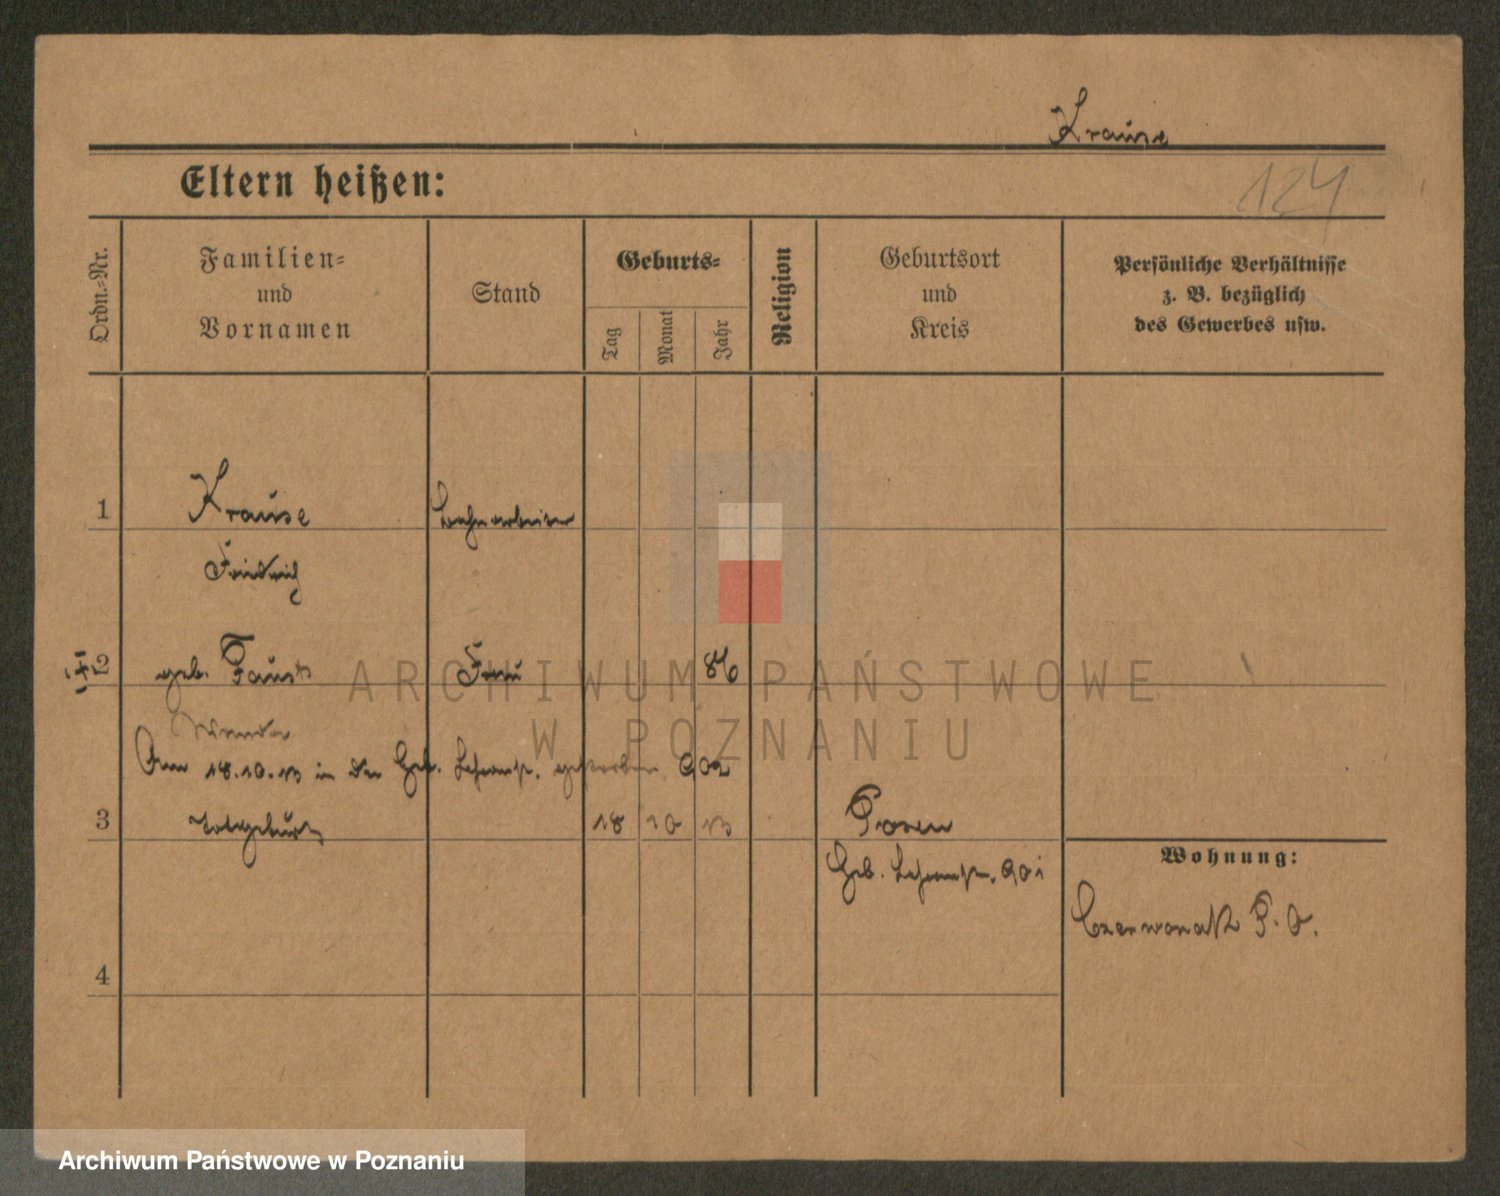 Krause
Eltern heißen:
124
Ordn.-Nr.
Familien-
und
Vornamen
Stand
Geburts-
Tag
Monat
Jahr
Religion
Geburtsort
und
Kreis
Persönliche Verhältnisse
z. B. bezüglich
des Gewerbes usw.
1 Krause Bahnarbeiter
Friedrich
2 geb. Faust Frau 86
Am 18.10.13 in der Geb. Lehranst. gestorben 902
3 Totgeburt 18 10 13 Posen
Geb. Lehranst. 901
Wohnung:
Czerwonak P. O.
4
ARCHIWUM PAŃSTWOWE
W POZNANIU
Archiwum Państwowe w Poznaniu